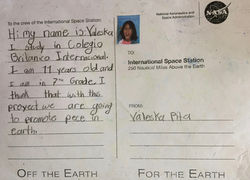 To the crew of the International Space Station:
Hi my name is Valeska
I study in Colegio
Britanico Internacional.
I am 11 years old and
I am in 7th Grade I
think that with this
proyect we are going
to promote pece in
earth.
OFF THE EARTH
National Aeronautics and
Space Administration
NASA
TO:
International Space Station
250 Nautical Miles Above the Earth
FROM:
Valeska Pita
FOR THE EARTH